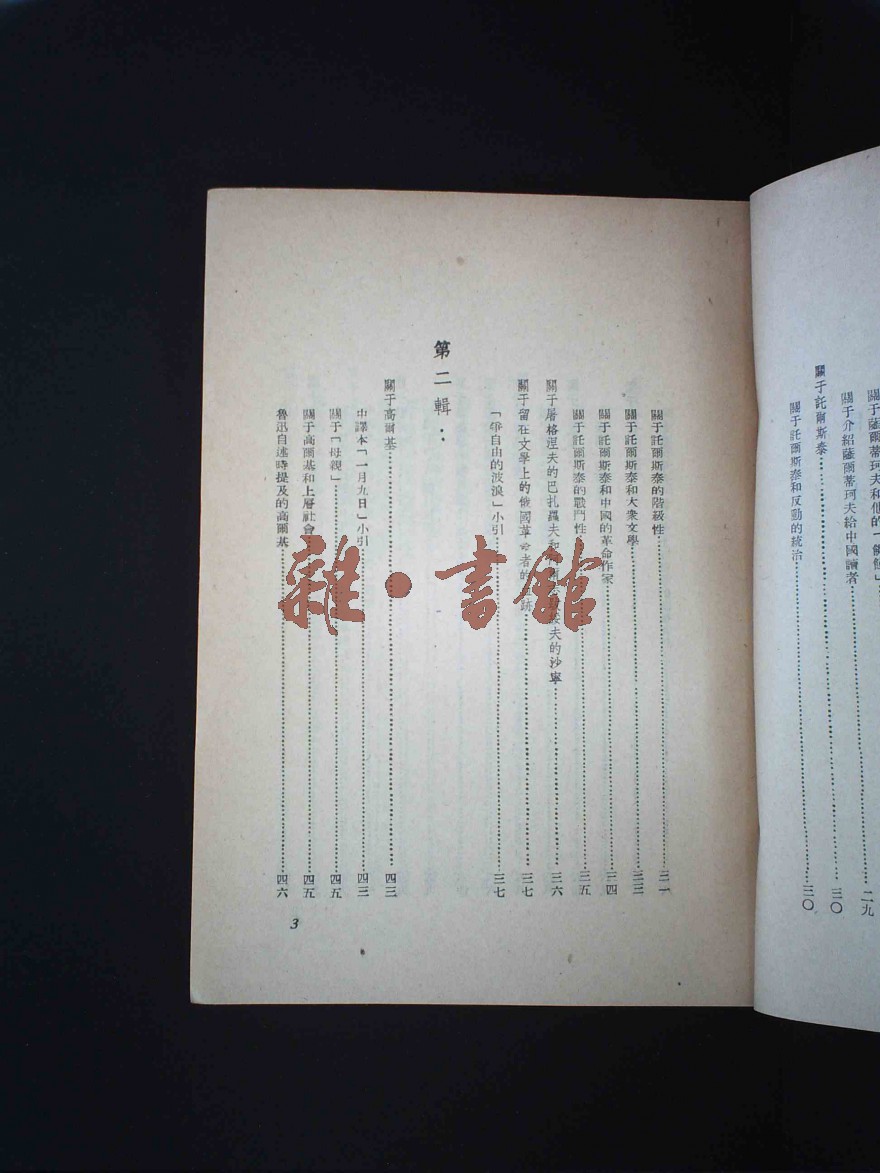 關于薩爾蒂珂夫和他的「饑饉」……二九
關于介紹薩爾蒂珂夫給中國讀者……三〇
關于託爾斯泰
關于託爾斯泰和反動的統治……三〇
關于託爾斯泰的階級性……三一
關于託爾斯泰和大衆文學……三三
關于託爾斯泰和中國的革命作家……三四
關于託爾斯泰的戰鬥性……三五
關于屠格涅夫的巴扎羅夫和 夫的沙寧……三六
關于留在文學上的俄國革命者的 跡……三七
「爭自由的波浪」小引……三七
第二輯：
關于高爾基……四三
中譯本「一月九日」小引……四三
關于「母親」……四五
關于高爾基和上層社會……四五
魯迅自述時提及的高爾基……四六
3
雜·書館